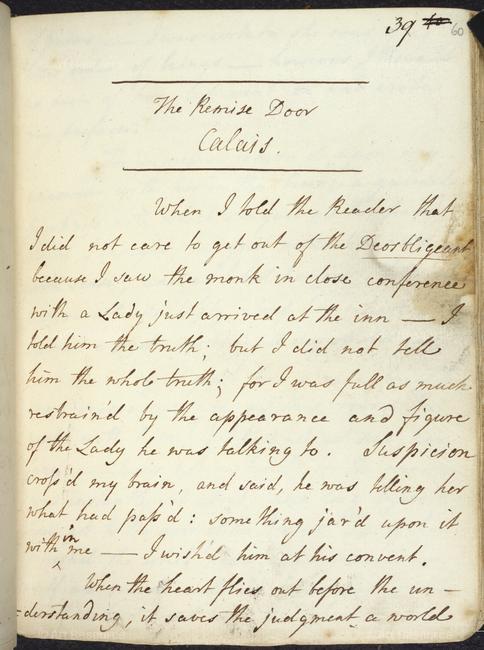 39 40 60
The Remise Door
Calais.
When I told the Reader that
I did not care to get out of the Desobligeant
because I saw the monk in close conference
with a Lady just arrived at the inn — I
told him the truth; but I did not tell
him the whole truth; for I was full as much
restrain'd by the appearance and figure
of the Lady he was talking to. Suspicion
cross'd my brain, and said, he was telling her
what had pass'd: something jar'd upon it
with in me — I wish'd him at his convent.
When the heart flies out before the un-
-derstanding, it saves the judgment a world